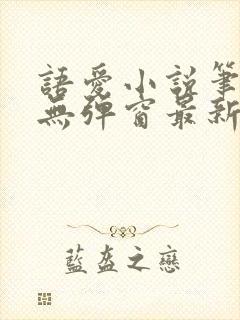 語愛小說筆
無彈窗最新
藍盔之戀